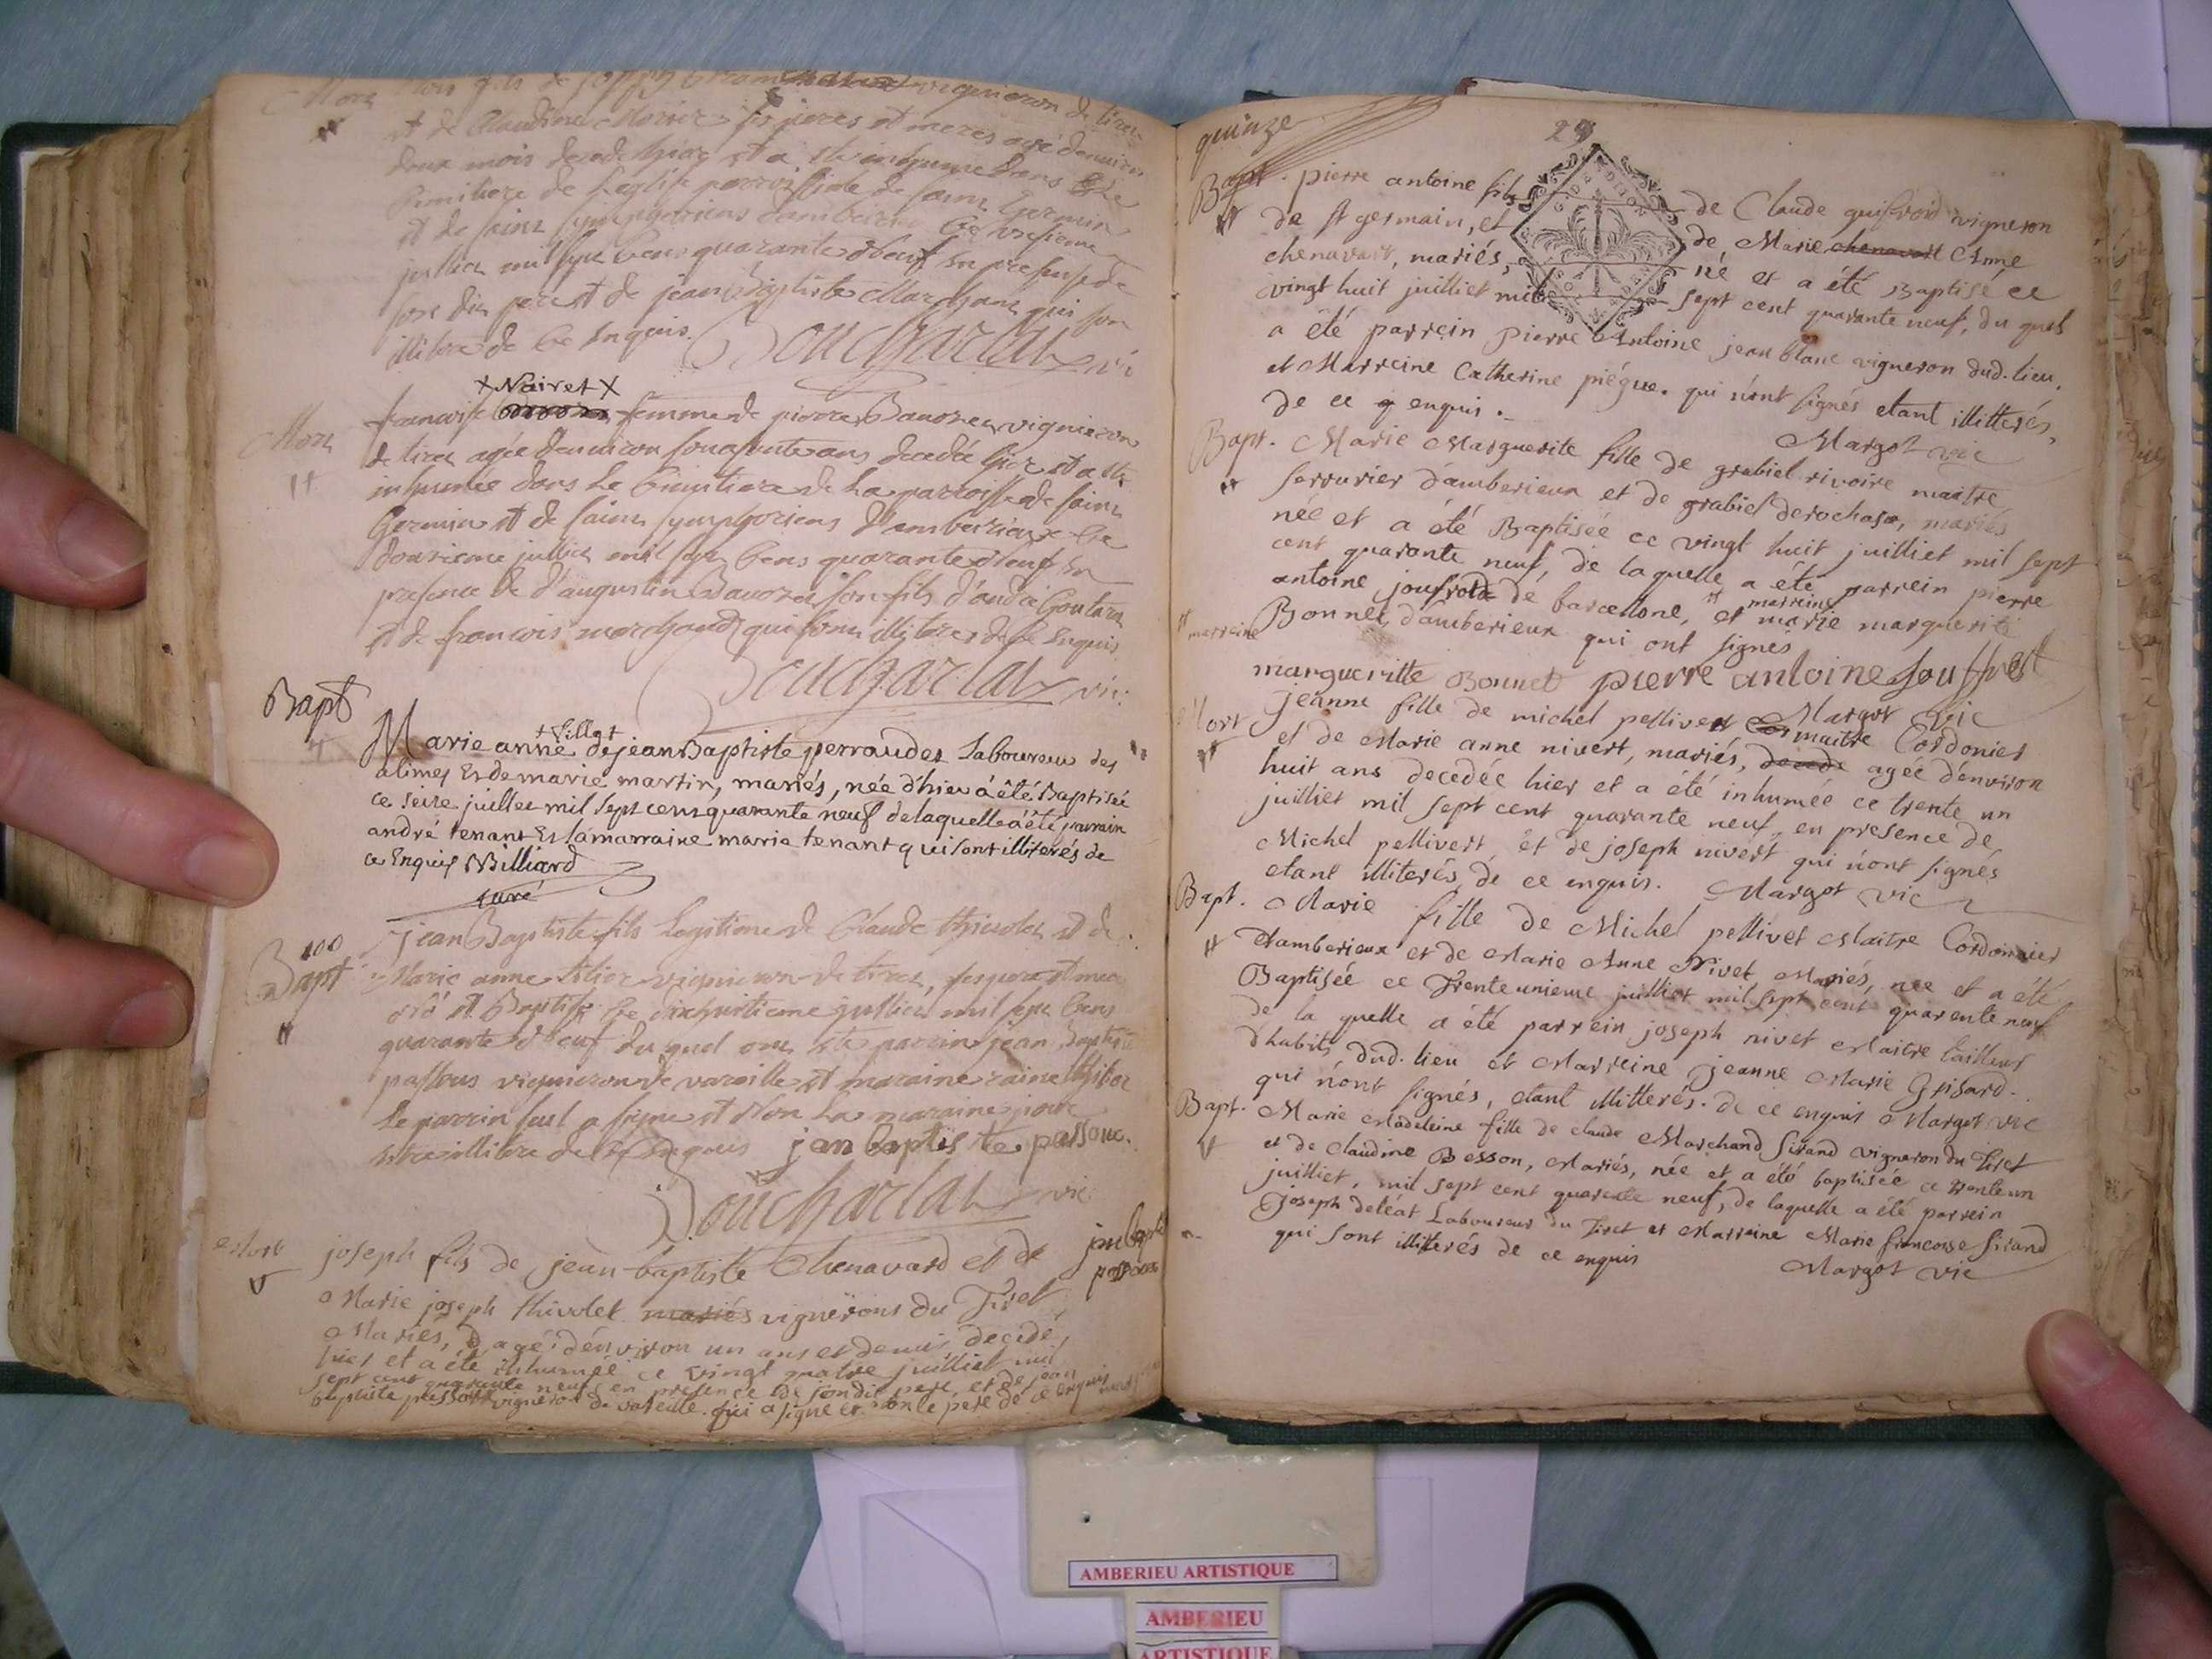 Mort
et de Claudine
deux mois decede hier et a été inhumé dans le
cimitiere de l'eglise parroissiale de saint Germin
et de saint
juillet mil sept cens quarante neuf en presence de
son dit pere et de jean baptiste Marchand qui son
illitere de ce enquis. Boucharlat vic
+ Nairet +
Mort
francoise femme de pierre Bavozet vigneron
de tiret agée d'environ soixante ans decedé hier et a été
inhumée dans le cimitiere de la parroisse de saint
Germin et de saint symphorient d'amberieux le
douzieme juillet mil sept cens quarante neuf en
presence de d'augustin Bavozet son fils d'andré
et de francois marchand qui sont illiteres de ce enquis
Boucharlat vic:
Bapt
+ fille +
Marie anne de jean Baptiste perraudet Laboureur des
alimes et de marie martin, mariés, née d'hier a été Baptisée
ce seize juillet mil sept cens quarante neuf de laquelle a été parrain
andré tenant et la marraine marie tenant qui sont illiterés de
ce Enquis Billiard
curé
100
Bapt
jean Baptiste fils Legitime de Claude thivolet et de
Marie anne vigneron de tiret, ses pere et mere
né et Baptisé le dixhuitieme juillet mil sept cens
quarante neuf du quel ont été parrin jean Baptiste
passous vigneron de vareille et maraine
Le parrin seul a signe et non la maraine pour
etre illitere de ce Enquis jan baptis te passouc.
Boucharlat vic
Mort
joseph fils de jean baptiste Chenavard et de
Marie joseph thivolet mariés vignerons du Tiret
Mariés, agé d'environ un an et demis decedé
hier et a été inhumée ce vingt quatre juilliet mil
sept cent quarante neuf en presence de son dit pere, et de jean
baptiste passout vigneron de vareille qui a signé et non le pere de ce enquis
quinze
29
Bapt. pierre antoine fils de Claude guifroid vigneron
de st germain, et de Marie chenavart Anne
chenavart, mariés, né et a été Baptisé ce
vingt huit juilliet mil sept cent quarante neuf, du quel
a été parrein pierre Antoine jean blanc vigneron dud. lieu.
et Marreine Catherine piégue. qui n'ont signés etant illitterés,
de ce q enquis.
Margot vic
Bapt. Marie Marguerite fille de grabiel rivoire maitre
serrurier d'amberieux et de grabiel derochase, mariés
née et a été Baptisée ce vingt huit juilliet mil sept
cent quarante neuf, de laquelle a été parrein pierre
antoine joufroid de barcellone, et marreine marie marguerite
marreine
Bonnet, d'amberieux qui ont signés
margueritte Bonnet pierre antoine Jouffroit
Margot vic
Mort
jeanne fille de michel pellivert maitre Cordonier
et de Marie anne nivert, mariés, decede agée d'environ
huit ans decedée hier et a été inhumée ce trente un
juilliet mil sept cent quarante neuf, en presence de
Michel pellivert et de joseph nivert qui n'ont signés
etant illiterés de ce enquis. Margot vic
Bapt. Marie fille de Michel pellivet Maitre Cordonnier
d'amberieux et de Marie Anne Nivet Mariés, née et a été
Baptisée ce Trente unieme juilliet mil sept cent quarente neuf
de la quelle a été parrein joseph nivet Maitre tailleur
d'habits, dud. lieu et Marreine jeanne Marie Grisard.
qui n'ont signés, etant illitterés. de ce enquis Margot vic
Bapt. Marie Madeleine fille de claude Marchand sirand vigneron du Tiret
et de claudine Besson, Mariés, née et a été baptisée ce trente un
juilliet, mil sept cent quarente neuf, de laquelle a été parrein
Joseph deléat Laboureur du Tiret et Marreine Marie francoise sirand
qui sont illitterés de ce enquis
Margot vic
AMBERIEU ARTISTIQUE
AMBERIEU
ARTISTIQUE